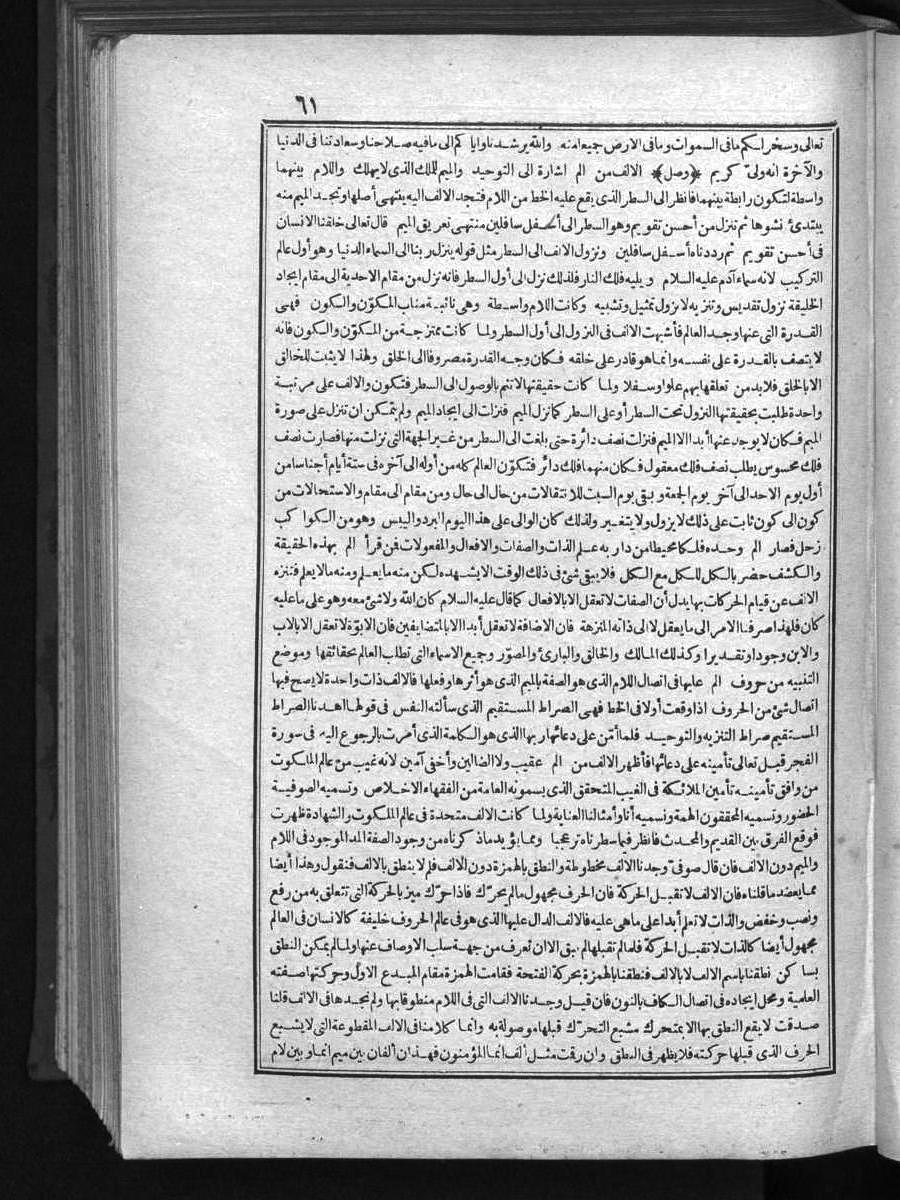 ٦١
تعالى وسخر لكم مافى السموات وما فى الارض جميعا منه والله يرشدنا واياكم الى مافيه صلاحنا وسعادتنا فى الدنيا
والآخرة انه ولىّ كريم ﴿وصل﴾ الالف من الم اشارة الى التوحيد والميم للملك الذى لايهلك واللام بينهما
واسطة لتكون رابطة بينهما فانظر الى السطر الذى يقع عليه الخط من اللام فتجد الالف اليه ينتهى أصلها وتجد الميم منه
يبتدئ نشوها ثم تنزل من أحسن تقويم وهو السطر الى أسفل سافلين منتهى تعريق الميم قال تعالى خلقنا الانسان
فى أحسن تقويم ثم رددناه أسفل سافلين ونزول الالف الى السطر مثل قوله ينزل ربنا الى السماء الدنيا وهو أول عالم
التركيب لانه سماء آدم عليه السلام و يليه فلك النار فلذلك نزل الى أول السطر فانه نزل من مقام الاحدية الى مقام ايجاد
الخليقة نزول تقديس وتنزيه لا نزول تمثيل وتشبيه وكانت اللام واسطة وهى نائبة مناب المكوّن والكون فهى
القدرة التى عنها وجد العالم فأشبهت الالف فى النزول الى أول السطر ولما كانت ممتزجة من المكوّن والكون فانه
لا يتصف بالقدرة على نفسه وانما هو قادر على خلقه فكان وجه القدرة مصروفا الى الخلق ولهذا لايثبت للخالق
الا بالخلق فلا بد من تعلقها بهم علوا وسفلا ولما كانت حقيقتها لا تتم بالوصول الى السطر فتكون والالف على مرتبة
واحدة طلبت بحقيقتها النزول تحت السطر أو على السطر كما نزل الميم فنزلت الى ايجاد الميم ولم يتمكن ان تنزل على صورة
الميم فكان لا يوجد عنها أبدا الا الميم فنزلت نصف دائرة حتى بلغت الى السطر من غير الجهة التى نزلت منها فصارت نصف
فلك محسوس يطلب نصف فلك معقول فكان منهما فلك دائر فتكوّن العالم كله من أوله الى آخره فى ستة أيام أجناسا من
أول يوم الاحد الى آخر يوم الجمعة و بقى يوم السبت للانتقالات من حال الى حال ومن مقام الى مقام والاستحالات من
كون الى كون ثابت على ذلك لايزول ولا يتغير ولذلك كان الوالى على هذا اليوم البرد واليبس وهو من الكواكب
زحل فصار الم وحده فلكا محيطا من دار به علم الذات والصفات والافعال والمفعولات فمن قرأ الم بهذه الحقيقة
والكشف حضر بالكل للكل مع الكل فلا يبقى شئ فى ذلك الوقت الا يشهده لكن منه ما يعلم ومنه مالا يعلم فتنزه
الالف عن قيام الحركات بها يدل أن الصفات لا تعقل الا بالافعال كما قال عليه السلام كان الله ولا شئ معه وهو على ما عليه
كان فلهذا صرفنا الامر الى ما يعقل لا الى ذاته المنزهة فان الاضافة لا تعقل أبدا الا بالمتضايفين فان الابوّة لا تعقل الا بالاب
والابن وجودا وتقديرا وكذلك المالك والخالق والبارئ والمصوّر وجميع الاسماء التى تطلب العالم بحقائقها وموضع
التنبيه من حروف الم عليها فى اتصال اللام الذى هو الصفة بالميم الذى هو أثرها وفعلها فالالف ذات واحدة لا يصح فيها
اتصال شئ من الحروف اذا وقعت أولا فى الخط فهى الصراط المستقيم الذى سألته النفس فى قولها اهدنا الصراط
المستقيم صراط التنزيه والتوحيد فلما أمّن على دعائها ربها الذى هو الكلمة الذى أمرت بالرجوع اليه فى سورة
الفجر قبل تعالى تأمينه على دعائها فأظهر الالف من الم عقيب ولا الضالين وأخفى آمين لانه غيب من عالم الملكوت
من وافق تأمينه تأمين الملائكة فى الغيب المتحقق الذى يسمونه العامة من الفقهاء الاخلاص وتسميه الصوفية
الحضور وتسميه المحققون الهمة ونسميه أنا وأمثالنا العناية ولما كانت الالف متحدة فى عالم الملكوت والشهادة ظهرت
فوقع الفرق بين القديم والمحدث فانظر فيما سطرناه تر عجبا ومما يؤيد ماذكرناه من وجود الصفة المد الموجود فى اللام
والميم دون الالف فان قال صوفىّ وجدنا الالف مخطوطة والنطق بالهمزة دون الالف فلم لا ينطق بالالف فنقول وهذا أيضا
مما يعضد ماقلناه فان الالف لا تقبل الحركة فان الحرف مجهول مالم يحرّك فاذا حرّك ميز بالحركة التى تتعلق به من رفع
ونصب وخفض والذات لا تعلم أبدا على ما هى عليه فالالف الدال عليها الذى هو فى عالم الحروف خليفة كالانسان فى العالم
مجهول أيضا كالذات لا تقبل الحركة فلما لم تقبلها لم يبق الا ان تعرف من جهة سلب الاوصاف عنها ولما لم يمكن النطق
بساكن نطقنا باسم الالف لا بالالف فنطقنا بالهمزة بحركة الفتحة فقامت الهمزة مقام المبدع الاوّل وحركتها صفته
العلمية ومحل ايجاده فى اتصال الكاف بالنون فان قيل وجدنا الالف التى فى اللام منطوقا بها ولم نجدها فى الالف قلنا
صدقت لا يقع النطق بها الا بمتحرك مشبع التحرّك قبلها موصولة به وانما كلامنا فى الالف المقطوعة التى لا يشبع
الحرف الذى قبلها حركته فلا يظهر فى النطق وان رقمت مثل ألف انما المؤمنون فهذان ألفان بين ميم انما و بين لام